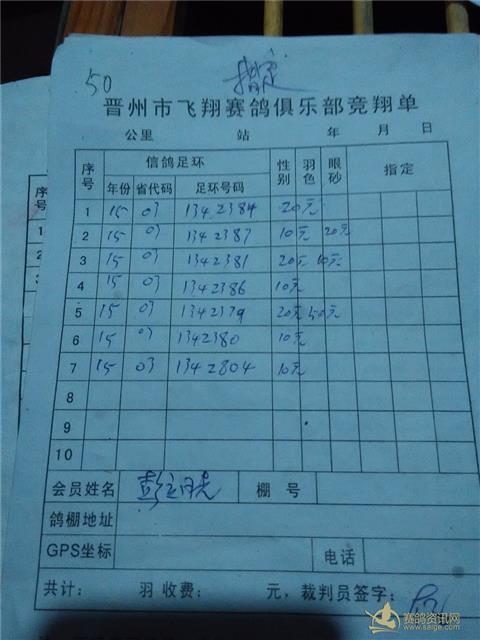 50 指定
晋州市飞翔赛鸽俱乐部竞翔单
公里 站 年 月 日
序号 信鸽足环 性别 羽色 眼砂 指定
年份 省代码 足环号码
1 15 03 1342384 20元
2 15 03 1342387 10元 20元
3 15 03 1342381 20元 10元
4 15 03 1342386 10元
5 15 03 1342379 20元 50元
6 15 03 1342380 10元
7 15 03 1342804 10元
8
9
10
会员姓名 彭 棚号
鸽棚地址
GPS坐标 电话
共计： 羽 收费； 元，裁判员签字：
赛鸽资讯网
www.saige.com
序号
1
2
3